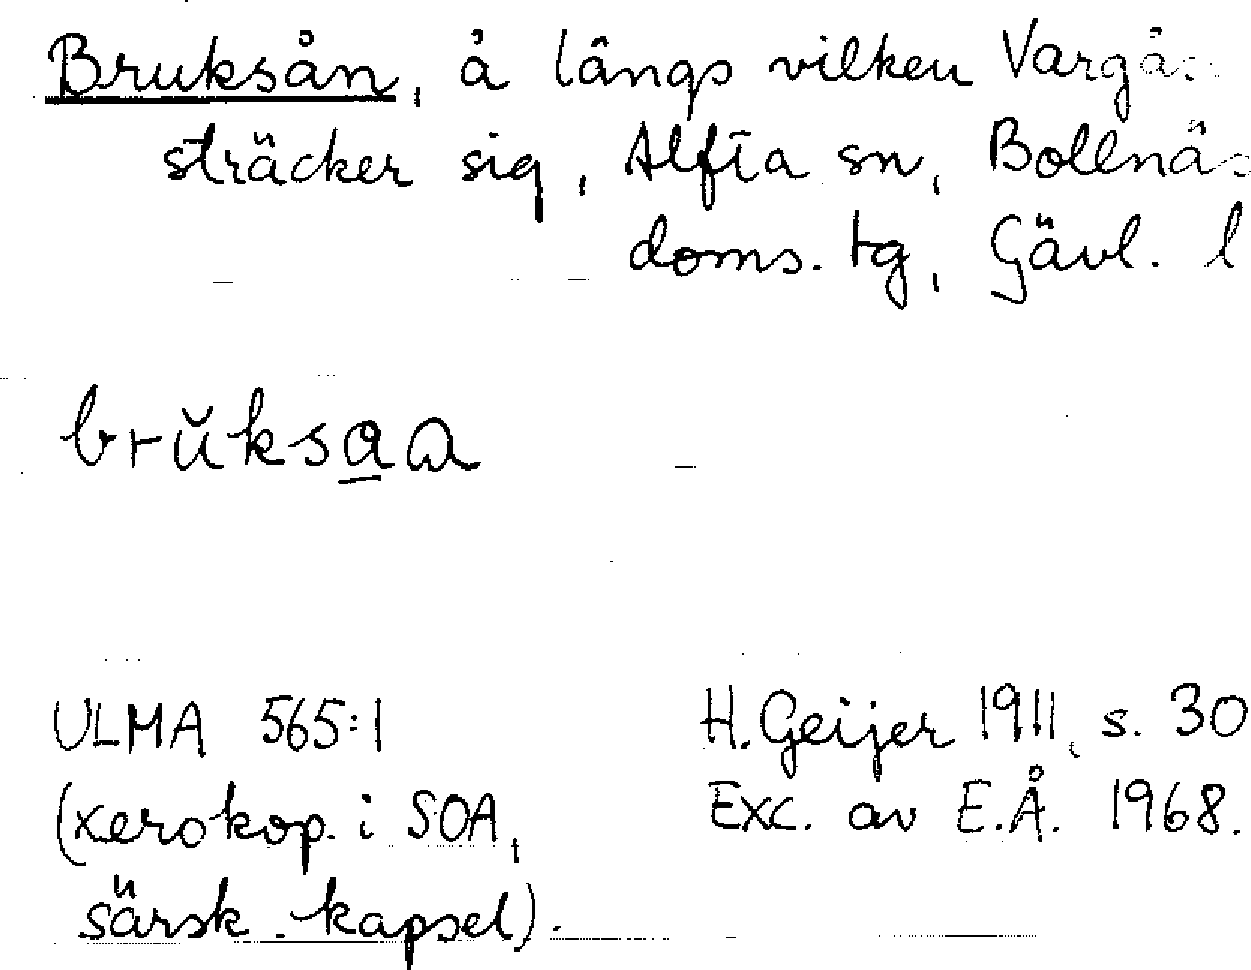 Bruksån, å längs vilken Vargås
sträcker sig, Alfta sn, Bollnäs
doms. tg, Gävl. l
brŭksa̲a
ULMA 565:1
(xerokop. i SOA,
särsk. kapsel).
H. Geijer 1911, s. 30
Exc. av E.Å. 1968.